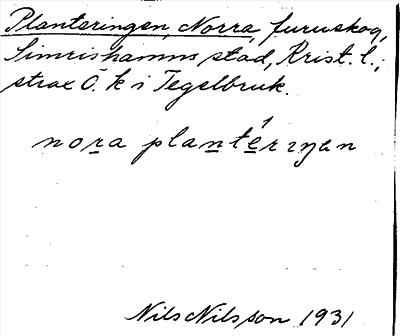 Planteringen, Norra, furuskog,
Simrishamns stad, Krist. l.;
strax Ö. k i Tegelbruk.
nora plantérıŋen
Nils Nilsson 1931